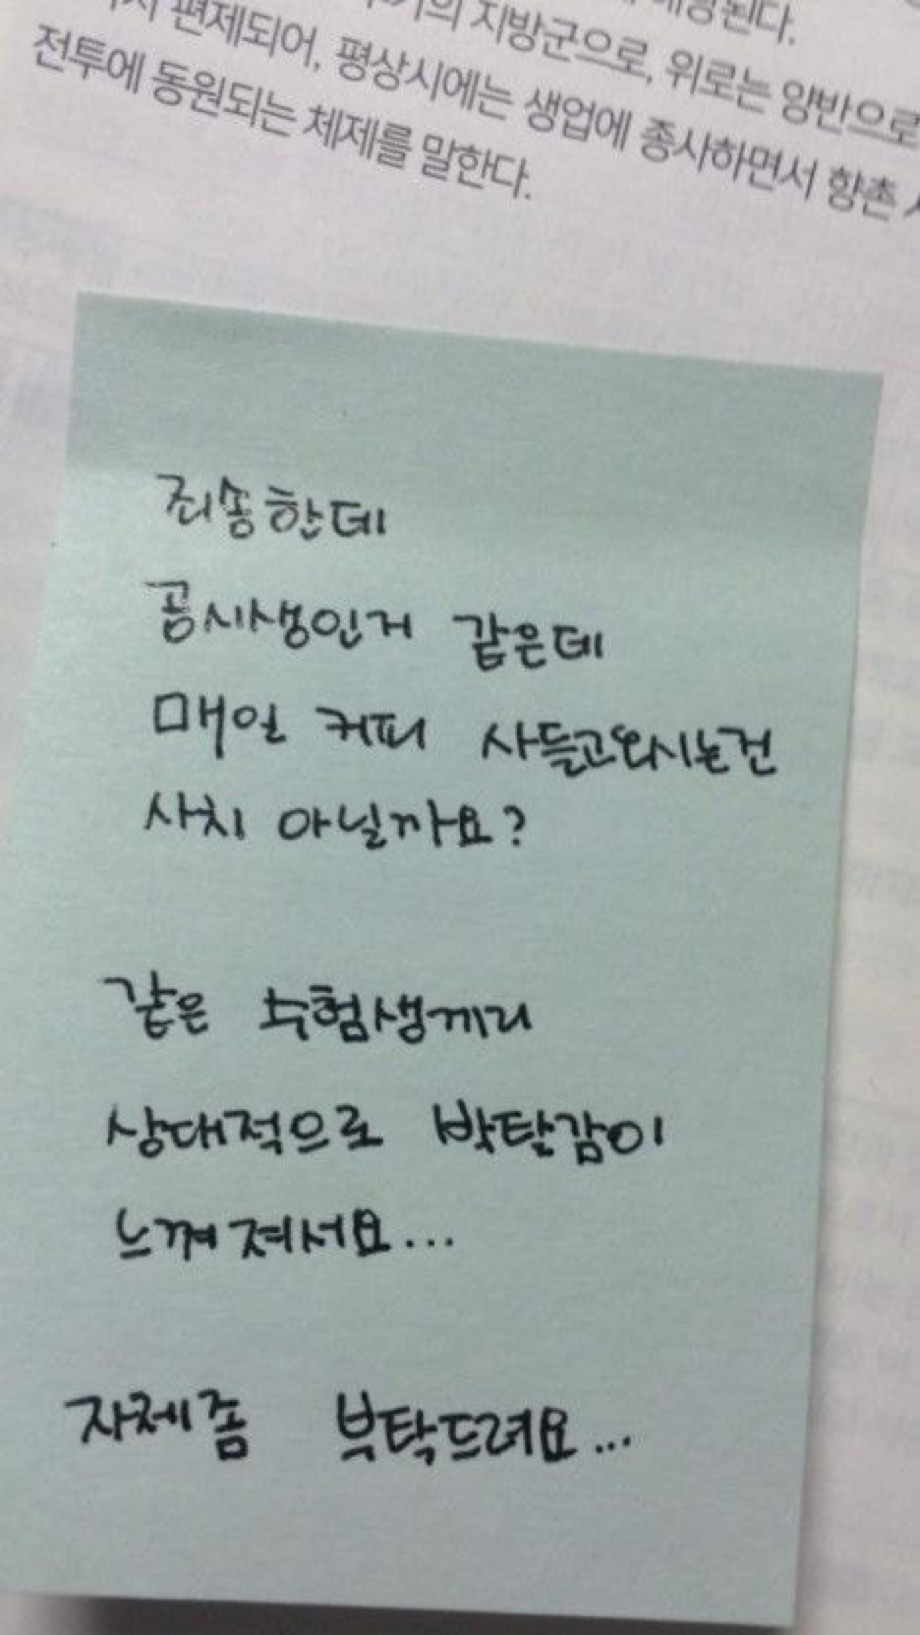 편제되어, 평상시에는 생업에 종사하면서 향촌
지방군으로, 위로는 양반으로
전투에 동원되는 체제를 말한다.
죄송한데
공시생인거 같은데
매일 커피 사들고와시는건
사치 아닐까요?
같은 수험생끼리
상대적으로 박탈감이
느껴져서요...
자체좀 부탁드려요...